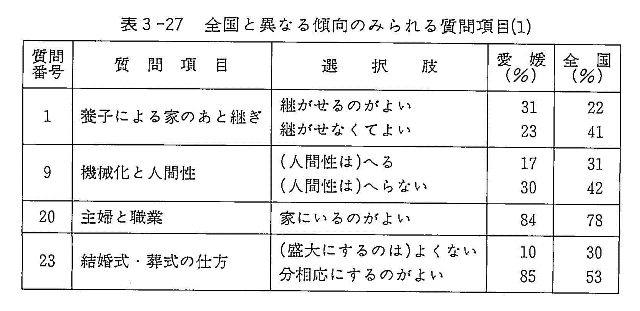 表3-27 全国と異なる傾向のみられる質問項目(1)
質問番号 質問項目 選択肢 愛媛(%) 全国(%)
1 養子による家のあと継ぎ 継がせるのがよい 31 22
継がせなくてよい 23 41
9 機械化と人間性 (人間性は)へる 17 31
(人間性は)へらない 30 42
20 主婦と職業 家にいるのがよい 84 78
23 結婚式・葬式の仕方 (盛大にするのは)よくない 10 30
分相応にするのがよい 85 53